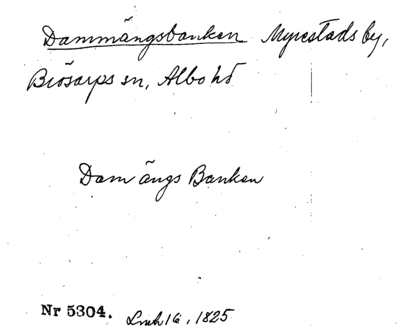 Dammängsbanken Myrestads by,
Brösarps sn, Albo hd
Dam ängs Banken
Nr 5304. Lmh 16, 1825